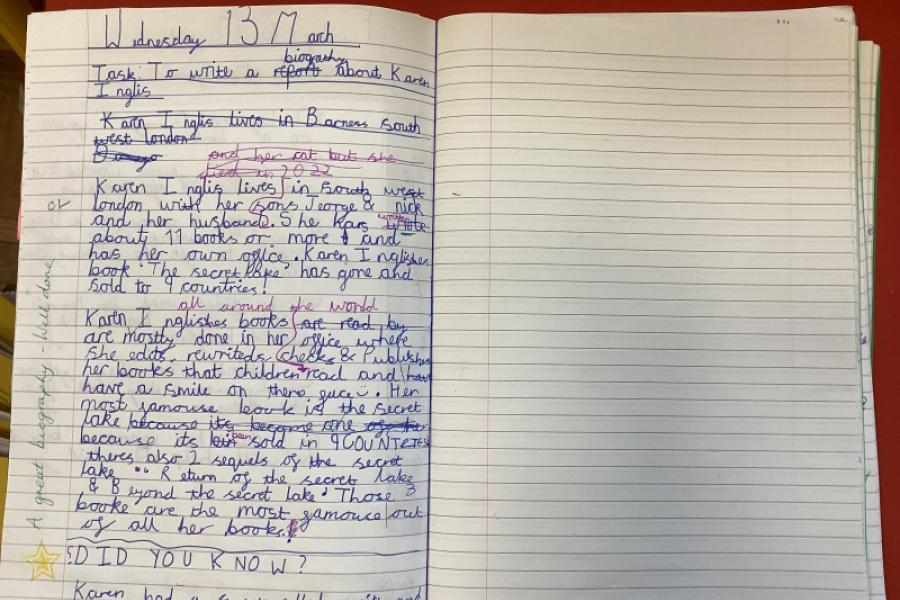 Wednesday 13 March
biography
Task: To write a report about Karen
Inglis
Karen Inglis lives in Barness south
west london
and her cat but she
died in 2022
Karen Inglis lives in south west
london with her sons Jeorge & nick
or
and her husband. She has wrote
about 11 books or more and
has her own office. Karen Inglishes
book 'The secret lake' has gone and
sold to 9 countries!
all around the world
Karen Inglishes books are read by
are mostly done in her office where
she edits, rewriteds, checks & Publishes
her books that children read and have
have a smile on there face. Her
most famouse book is the secret
lake because its become one of her
because its been sold in 9 COUNTRIES
theres also 2 sequels of the secret
lake " Return of the secret lake
& Beyond the secret lake' Those 3
booke are the most famouse out
of all her books!
A great biography - Well done
DID YOU KNOW?
Karen had a